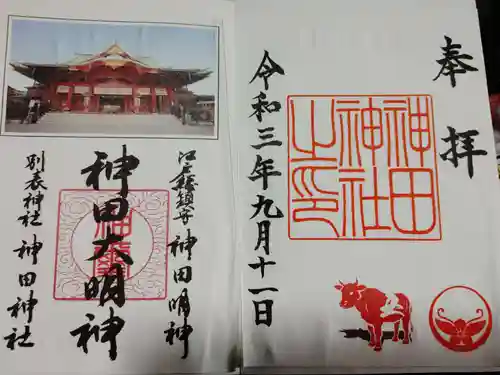 奉拝
神田神社之印
令和三年九月十一日
江戸總鎮守 神田明神
神田大明神
別表神社 神田神社